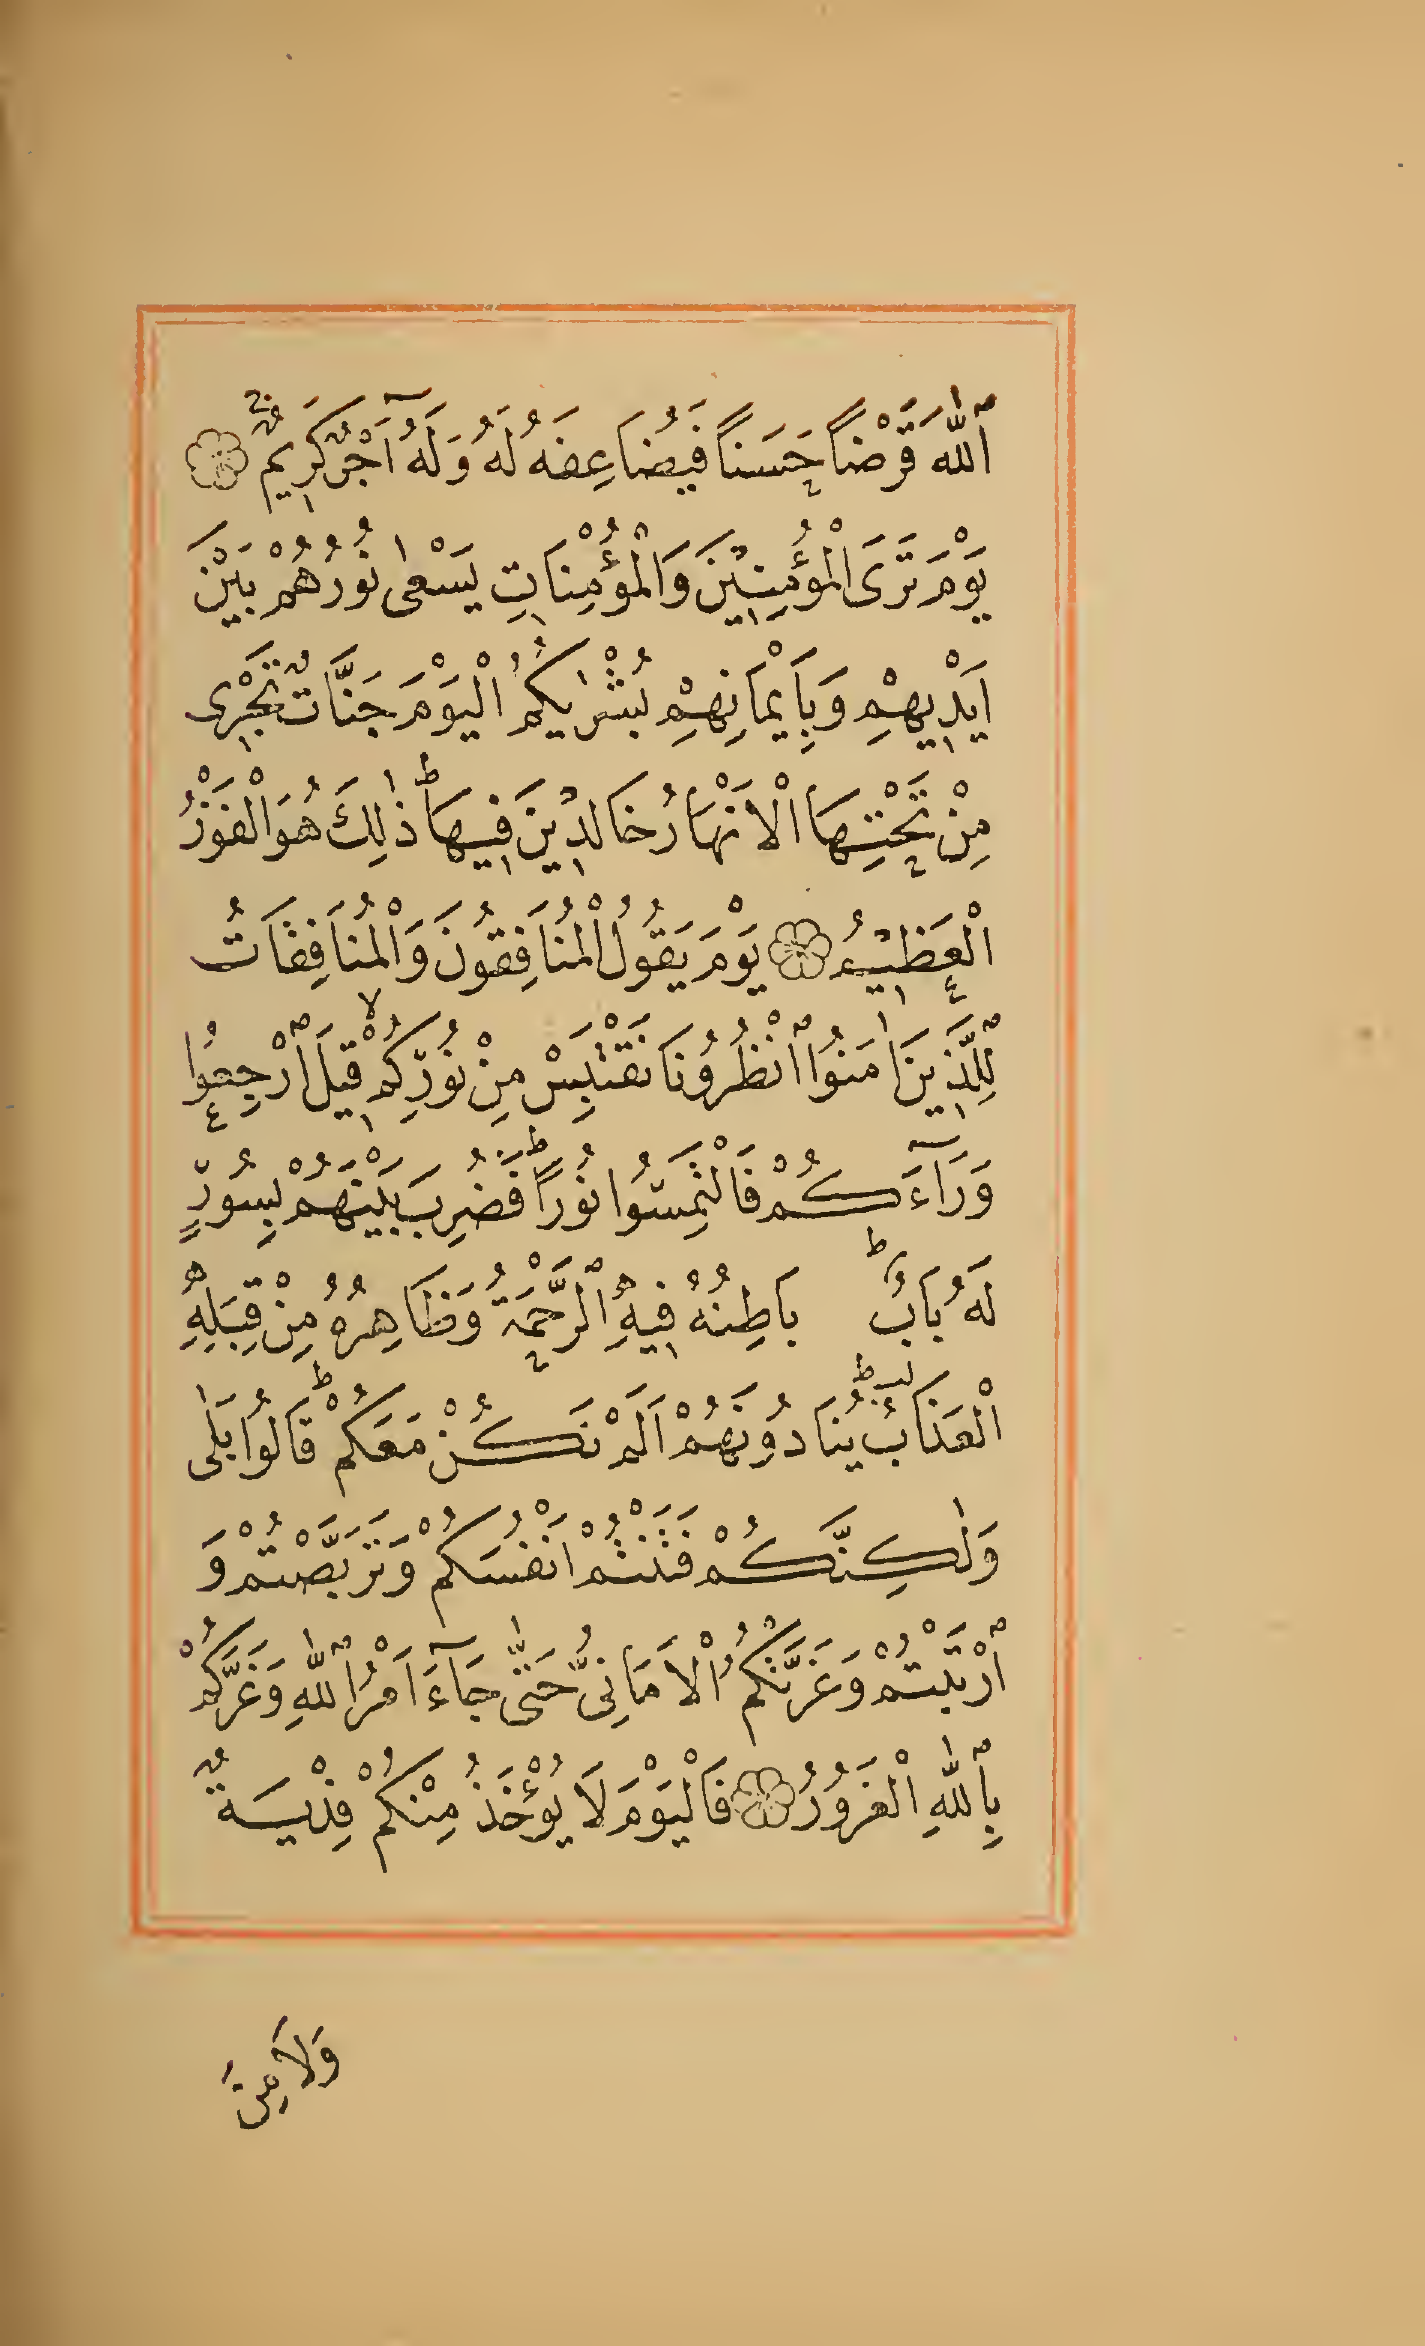 ٱللّٰهَ قَرْضًا حَسَنًا فَيُضَاعِفَهُ لَهُ وَلَهُٓ اَجْرٌ كَرِيمٌ
يَوْمَ تَرَى الْمُؤْمِنِيْنَ وَالْمُؤْمِنَاتِ يَسْعٰى نُوْرُهُمْ بَيْنَ
اَيْدِيهِمْ وَبِاَيْمَانِهِمْ بُشْرٰيكُمُ الْيَوْمَ جَنَّاتٌ تَجْرِى
مِنْ تَحْتِهَا الْاَنْهَارُ خَالِدِيْنَ فِيهَا ؕ ذٰلِكَ هُوَ الْفَوْزُ
الْعَظِيْمُ يَوْمَ يَقُولُ الْمُنَافِقُونَ وَالْمُنَافِقَاتُ
لِلَّذِينَ اٰمَنُوا ٱنْظُرُوْنَا نَقْتَبِسْ مِنْ نُوْرِكُمْ ۙ قِيلَ ٱرْجِعُوا
وَرَآءَكُمْ فَالْتَمِسُوا نُوْرًا ؕ فَضُرِبَ بَيْنَهُمْ بِسُوْرٍ
لَهُ بَابٌ ؕ بَاطِنُهُ فِيهِ ٱلرَّحْمَةُ وَظَاهِرُهُ مِنْ قِبَلِهِ
الْعَذَابُ ؕ يُنَادُوْنَهُمْ اَلَمْ نَكُنْ مَعَكُمْ ؕ قَالُوا بَلٰى
وَلٰكِنَّكُمْ فَتَنْتُمْ اَنْفُسَكُمْ وَتَرَبَّصْتُمْ وَ
ٱرْتَبْتُمْ وَغَرَّتْكُمُ الْاَمَانِىُّ حَتّٰى جَآءَ اَمْرُ ٱللّٰهِ وَغَرَّكُمْ
بِٱللّٰهِ الْغَرُوْرُ فَالْيَوْمَ لَا يُؤْخَذُ مِنْكُمْ فِدْيَةٌ
وَلَا مِنَ